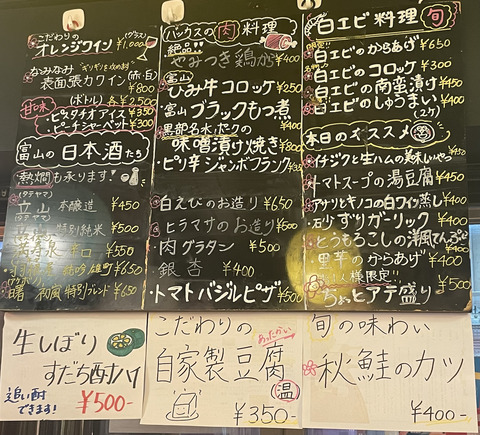 こだわりの (グラス)
オレンジワイン ¥1,000
なみなみ "ギリギリを攻めます"
表面張力ワイン(赤・白)
¥800
(ボトル) 各¥2,500
甘味
・ピスタチオアイス ¥350
・ピーチシャーベット ¥300
富山の日本酒たち
熱燗も承ります!
(タテヤマ)
立山 本醸造 ¥450
(タテヤマ)
立山 特別純米 ¥500
辛口 ¥550
¥650
曙 和風特別ブレンド ¥650
バックスの肉料理
絶品!!
やみつき鶏がら ¥400
富山
ひみ牛コロッケ ¥250
・富山ブラックもつ煮
¥400
黒部名水ポークの
・味噌漬け焼き ¥800
・ピリ辛ジャンボフランク
白えびのお造り ¥650
・ヒラマサのお造り ¥500
・肉グラタン ¥500
・銀杏 ¥400
・トマトバジルピザ ¥500
白エビ料理 旬
白エビのからあげ ¥650
白エビのコロッケ ¥300
白エビの南蛮漬け ¥450
白エビのしゅうまい ¥400
(2ケ)
本日のオススメ
・イチジクと生ハムの ¥450
・トマトスープの湯豆腐 ¥450
・アサリとキノコの白ワイン蒸し ¥450
・砂ずりガーリック ¥400
・とうもろこしの洋風てんぷら ¥400
・里芋のからあげ ¥400
1人様限定!!
ちょいアテ盛り ¥500
生しぼり
すだち酎ハイ
追い酎
できます!
¥500-
こだわりの
あったかい
自家製豆腐
(温)
¥350-
旬の味わい
秋鮭のカツ
¥400-